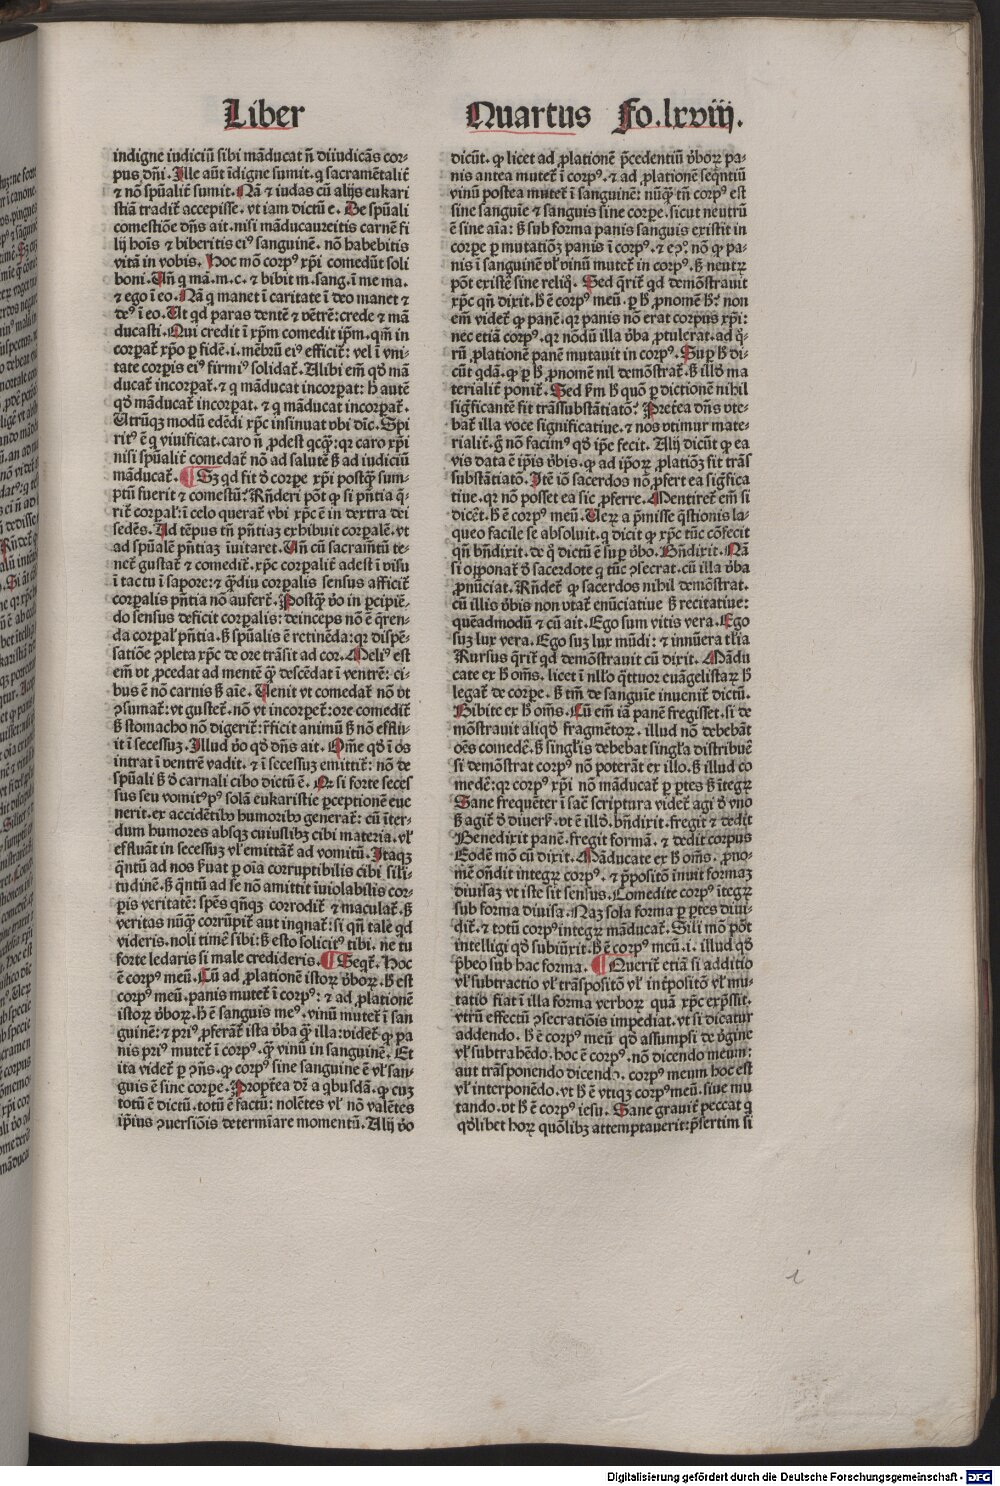 Liber Quartus Fo. lxviij.
indigne iudiciū sibi māducat ñ diiudicās cor-
pus dñi. Ille aūt īdigne sumit. q sacramētalit̄
⁊ nō spūalit̄ sumit. Nā ⁊ iudas cū alijs eukari
stiā tradit̄ accepisse. vt iam dictū e. De spūali
comestiōe dñs ait. nisi māducaureitis carnē fi
lij hoīs ⁊ biberitis eiꝰ sanguinē. nō habebitis
vitā in vobis. Hoc mō corpꝰ xp̄i comedūt soli
boni. Uñ q mā. m. c. ⁊ bibit m. sang. ī me ma.
⁊ ego ī eo. Nā q manet ī caritate ī deo manet ⁊
deꝰ ī eo. Ut qd paras dentē ⁊ vētrē: crede ⁊ mā
ducasti. Qui credit ī xp̄m comedit ip̄m. qm̄ in
corpat̄ xp̄o ꝑ fidē. i. mēbrū eiꝰ efficit̄: vel ī vni-
tate corpis eiꝰ firmiꝰ solidat̄. Alibi em̄ qd̄ mā
ducat̄ incorpat̄. ⁊ q māducat incorpat: h̄ autē
qd̄ māducat̄ incorpat. ⁊ q māducat incorpat̄.
Utrūqꝫ modū edēdi xp̄c insinuat vbi dīc. Spi
ritꝰ ē q viuificat. caro ñ ꝓdest qcꝗ̄: qr caro xp̄i
nisi spūalit̄ comedat̄ nō ad salutē s̄ ad iudiciū
māducat̄. ¶ Sꝫ qd fit d̄ corpe xp̄i postꝗ̄ sum-
ptū fuerit ⁊ comestū? Rñderi pōt ꝙ si pñtia q̄-
rit̄ corpal̄: ī celo querat̄ vbi xp̄c ē in dextra dei
sedēs. Ad tēpus tñ pñtiaꝫ exhibuit corpalē. vt
ad spūalē pñtiaꝫ īuitaret. Uñ cū sacramētū te-
net̄ gustat̄ ⁊ comedit̄. xp̄c corpalit̄ adest ī visu
ī tactu ī sapore: ⁊ ꝗ̄diu corpalis sensus afficit̄
corpalis pñtia nō aufert̄. Postꝗ̄ v̄o in ꝑcipiē-
do sensus deficit corpalis: deinceps nō ē q̄ren-
da corpal̄ pñtia. s̄ spūalis ē retinēda: qr dispē-
satiōe ꝯpleta xp̄c de ore trāsit ad cor. Meliꝰ est
em̄ vt ꝓcedat ad mentē ꝗ̄ descēdat ī ventrē: ci-
bus ē nō carnis s̄ aīe. Uenit vt comedat̄ nō vt
ꝯsumat̄: vt gustet̄. nō vt incorpet̄: ore comedit̄
s̄ stomacho nō digerit̄: r̄ficit animū s̄ nō efflu-
it ī secessuꝫ. Illud v̄o qd̄ dñs ait. Om̄e qd̄ ī os
intrat ī ventrē vadit. ⁊ ī secessuꝫ emittit̄: nō de
spūali s̄ d̄ carnali cibo dictū ē. Qr si forte seces
sus seu vomitꝰ pꝰ solā eukaristie ꝑceptionē eue
nerit. ex accidētibꝰ humoribꝰ generat̄: cū īter-
dum humores absqꝫ cuiuslibꝫ cibi materia. vl̄
effluāt in secessuꝫ vl̄ emittāt̄ ad vomitū. Itaqꝫ
q̄ntū ad nos ẜuat ꝑ oīa corruptibilis cibi sili-
tudinē. s̄ q̄ntū ad se nō amittit īuiolabilis cor-
pis veritatē: sp̄es qñqꝫ corrodit̄ ⁊ maculat̄. s̄
veritas nūꝗ̄ corrūpit̄ aut inqnat̄: si qñ tale qd
videris. noli timē sibi: s̄ esto solicitꝰ tibi. ne tu
forte ledaris si male credideris. ¶ Seqt̄. Hoc
ē corpꝰ meū. Cū ad ꝓlationē istoꝝ v̄boꝝ. h̄ est
corpꝰ meū. panis mutet̄ ī corpꝰ: ⁊ ad ꝓlationē
istoꝝ v̄boꝝ. h̄ ē sanguis meꝰ. vinū mutet̄ ī san
guinē: ⁊ priꝰ ꝓferāt̄ ista v̄ba ꝗ̄ illa: videt̄ ꝙ pa
nis priꝰ mutet̄ ī corpꝰ. ꝗ̄ vinū in sanguinē. Et
ita videt̄ ꝑ ꝯñs. ꝙ corpꝰ sine sanguine ē vl̄ san-
guis ē sine corpe. Propt̄ea dr̄ a qbusdā. ꝙ cuꝫ
totū ē dictū. totū ē factū: nolētes vl̄ nō valētes
ip̄ius ꝯuersiōis determīare momentū. Alij v̄o
dicūt. ꝙ licet ad ꝓlationē p̄cedentiū v̄boꝝ pa-
nis antea mutet̄ ī corpꝰ. ⁊ ad ꝓlationē seqntiū
vinū postea mutet̄ ī sanguinē: nūꝗ̄ tñ corpꝰ est
sine sanguīe ⁊ sanguis sine corpe. sicut neutrū
ē sine aīa: s̄ sub forma panis sanguis existit in
corpe ꝑ mutatiōꝫ panis ī corpꝰ. ⁊ eꝯꝰ. nō ꝙ pa-
nis ī sanguinē vl̄ vinū mutet̄ in corpꝰ. s̄ neutꝝ
pōt existē sine reliqꝰ. Sed q̄rit̄ qd demōstrauit
xp̄c qñ dixit. h̄ ē corpꝰ meū. ꝑ h̄ ꝓnomē hꝰ. non
em̄ videt̄ ꝙ panē. qr panis nō erat corpus xp̄i:
nec etiā corpꝰ. qr nōdū illa v̄ba ꝓtulerat. ad q̄-
rū ꝓlationē panē mutauit in corpꝰ. Suꝑ h̄ di-
cūt qdā. ꝙ ꝑ h̄ ꝓnomē nil demōstrat̄. s̄ illd̄ ma
terialit̄ ponit̄. Sed ẜm h̄ quō ꝑ dictionē nihil
sig̃ficantē fit trāssubstātiatō? Pret̄ea dñs vte-
bat̄ illa voce significatiue. ⁊ nos vtimur mate-
rialit̄. g̃ nō facimꝰ qd̄ ip̄e fecit. Alij dicūt ꝙ ea
vis data ē ip̄is v̄bis. ꝙ ad ip̄oꝝ ꝓlatiōꝫ fit trās
substātiatō. Itē iō sacerdos nō ꝓfert ea sig̃fica
tiue. qr nō posset ea sic ꝓferre. Mentiret̄ em̄ si
dicēt. h̄ ē corpꝰ meū. Ueꝝ a p̄misse q̄stionis la-
queo facile se absoluit. q dicit ꝙ xp̄c tūc cōfecit
qñ bñdixit. de q̄ dictū ē suꝑ v̄bo. Bñdixit. Nā
si oꝓponat̄ d̄ sacerdote q tūc ꝯsecrat. cū illa v̄ba
ꝓnūciat. Rñdet̄ ꝙ sacerdos nihil demōstrat.
cū illis v̄bis non vtat̄ enūciatiue s̄ recitatiue:
quēadmodū ⁊ cū ait. Ego sum vitis vera. Ego
suꝫ lux vera. Ego suꝫ lux mūdi: ⁊ innūera tl̄ia
Rursus q̄rit̄ qd demōstrauit cū dixit. Mādu
cate ex h̄ om̄s. licet ī nll̄o q̄ttuor euāgelistaꝝ h̄
legat̄ de corpe. s̄ tm̄ de sanguīe inuenit̄ dictū.
Bibite ex h̄ om̄s. Cū em̄ iā panē fregisset. si de
mōstrauit aliqd̄ fragmētoꝝ. illud nō debebāt
oēs comedē. s̄ singl̄is debebat singl̄a distribuē
si demōstrat corpꝰ nō poterāt ex illo. s̄ illud co
medē: qr corpꝰ xp̄i nō māducat̄ ꝑ ptes s̄ ītegꝝ
Sane frequēter ī sac̄ scriptura videt̄ agi d̄ vno
s̄ agit̄ d̄ diuerẜ. vt ē illd̄. bñdixit. fregit ⁊ dedit
Benedixit panē. fregit formā. ⁊ dedit corpus
Eodē mō cū dixit. Māducate ex h̄ om̄s. ꝓno-
mē oñdit integꝝ corpꝰ. ⁊ p̄positō inuit formaꝫ
diuisaꝫ vt iste sit sensus. Comedite corpꝰ ītegꝝ
sub forma diuisa. Naꝫ sola forma ꝑ ptes diui-
dit̄. ⁊ totū corpꝰ integꝝ māducat̄. Sili mō pōt
intelligi qd̄ subiūxit. h̄ ē corpꝰ meū. i. illud qd̄
p̄beo sub hac forma. ¶ Querit̄ etiā si additio
vl̄ subtractio vl̄ trāspositō vl̄ int̄positō vl̄ mu-
tatio fiat ī illa forma verboꝝ quā xp̄c exp̄ssit.
vtrū effectū ꝯsecratiōis impediat. vt si dicatur
addendo. h̄ ē corpꝰ meū qd̄ assumpsi de v̄gine
vl̄ subtrahēdo. hoc ē corpꝰ. nō dicendo meum:
aut trāsponendo dicendo. corpus meum hoc est
vl̄ interponēdo. vt h̄ ē vtiqꝫ corpꝰ meū. siue mu
tando. vt h̄ ē corpꝰ iesu. Sane grauit̄ peccat q
qd̄libet hoꝝ quōlibꝫ attemptauerit: p̄sertim si
i
Digitalisierung gefördert durch die Deutsche Forschungsgemeinschaft - DFG